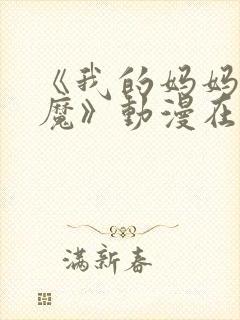 《我的妈妈
魔》動漫在
满新春